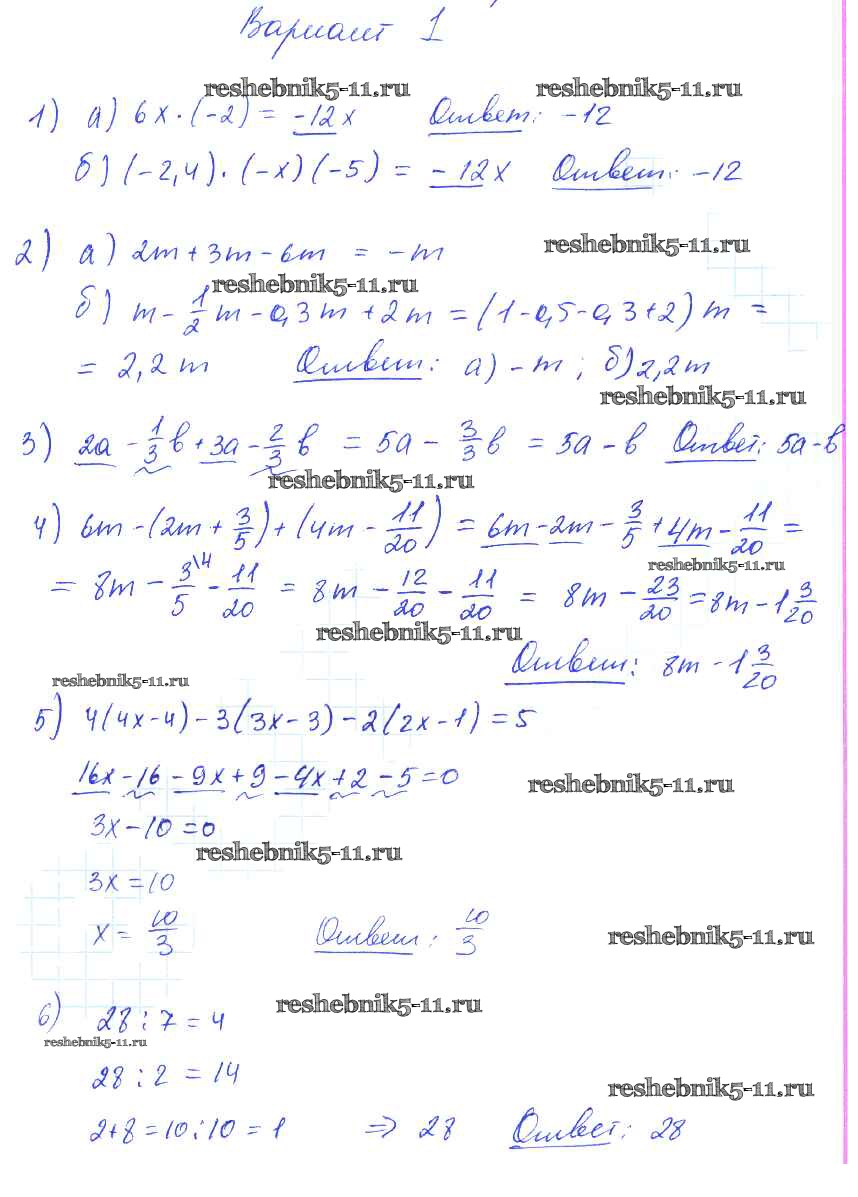 Вариант 1
reshebnik5-11.ru reshebnik5-11.ru
1) а) 6x · (-2) = -12x Ответ: -12
б) (-2,4) · (-x) (-5) = -12x Ответ: -12
2) а) 2m + 3m - 6m = -m reshebnik5-11.ru
reshebnik5-11.ru
б) m - 1/2 m - 0,3m + 2m = (1 - 0,5 - 0,3 + 2) m =
= 2,2 m Ответ: а) -m ; б) 2,2m
reshebnik5-11.ru
3) 2a - 1/3 в + 3a - 2/3 в = 5a - 3/3 в = 5a - в Ответ: 5a-в
reshebnik5-11.ru
4) 6m - (2m + 3/5) + (4m - 11/20) = 6m - 2m - 3/5 + 4m - 11/20 =
reshebnik5-11.ru
= 8m - 3\4/5 - 11/20 = 8m - 12/20 - 11/20 = 8m - 23/20 = 8m - 1 3/20
reshebnik5-11.ru
Ответ: 8m - 1 3/20
reshebnik5-11.ru
5) 4(4x-4) - 3(3x-3) - 2(2x-1) = 5
16x - 16 - 9x + 9 - 4x + 2 - 5 = 0 reshebnik5-11.ru
3x - 10 = 0
reshebnik5-11.ru
3x = 10
x = 10/3 Ответ: 10/3 reshebnik5-11.ru
reshebnik5-11.ru
6) 28 : 7 = 4
reshebnik5-11.ru
28 : 2 = 14
reshebnik5-11.ru
2+8 = 10 : 10 = 1 => 28 Ответ: 28